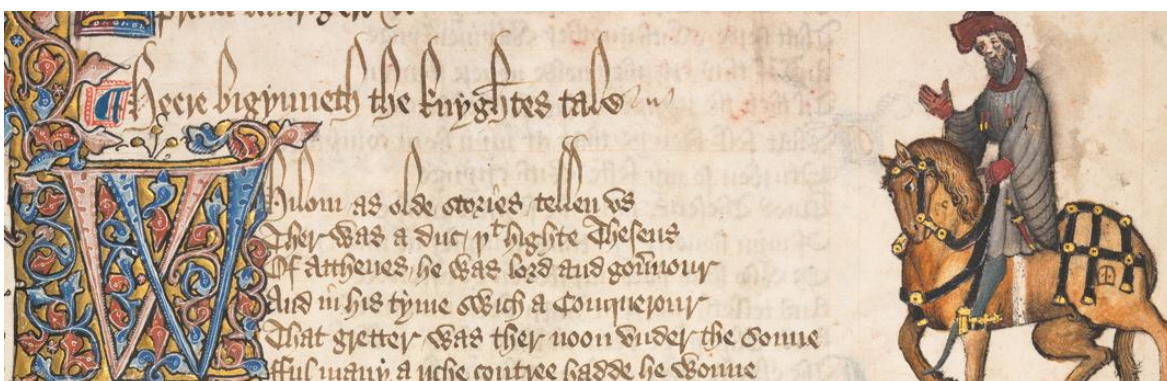 Heere bigynneth the knyghtes tale
Whilom as olde stories tellen vs
Ther was a duc yͭ highte Theseus
Of Atthenes he was lord and gou̅nour
And in his tyme swich a Conquerour
That gretter was ther noon vnder the sonne
fful many a riche contree hadde he wonne